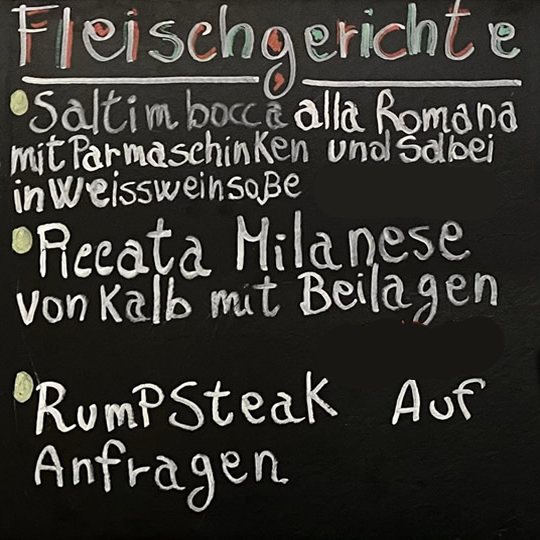 Fleischgerichte
Saltimbocca alla Romana
mit Parmaschinken und Salbei
in Weissweinsoße
Piccata Milanese
von Kalb mit Beilagen
RumPSteak Auf
Anfragen